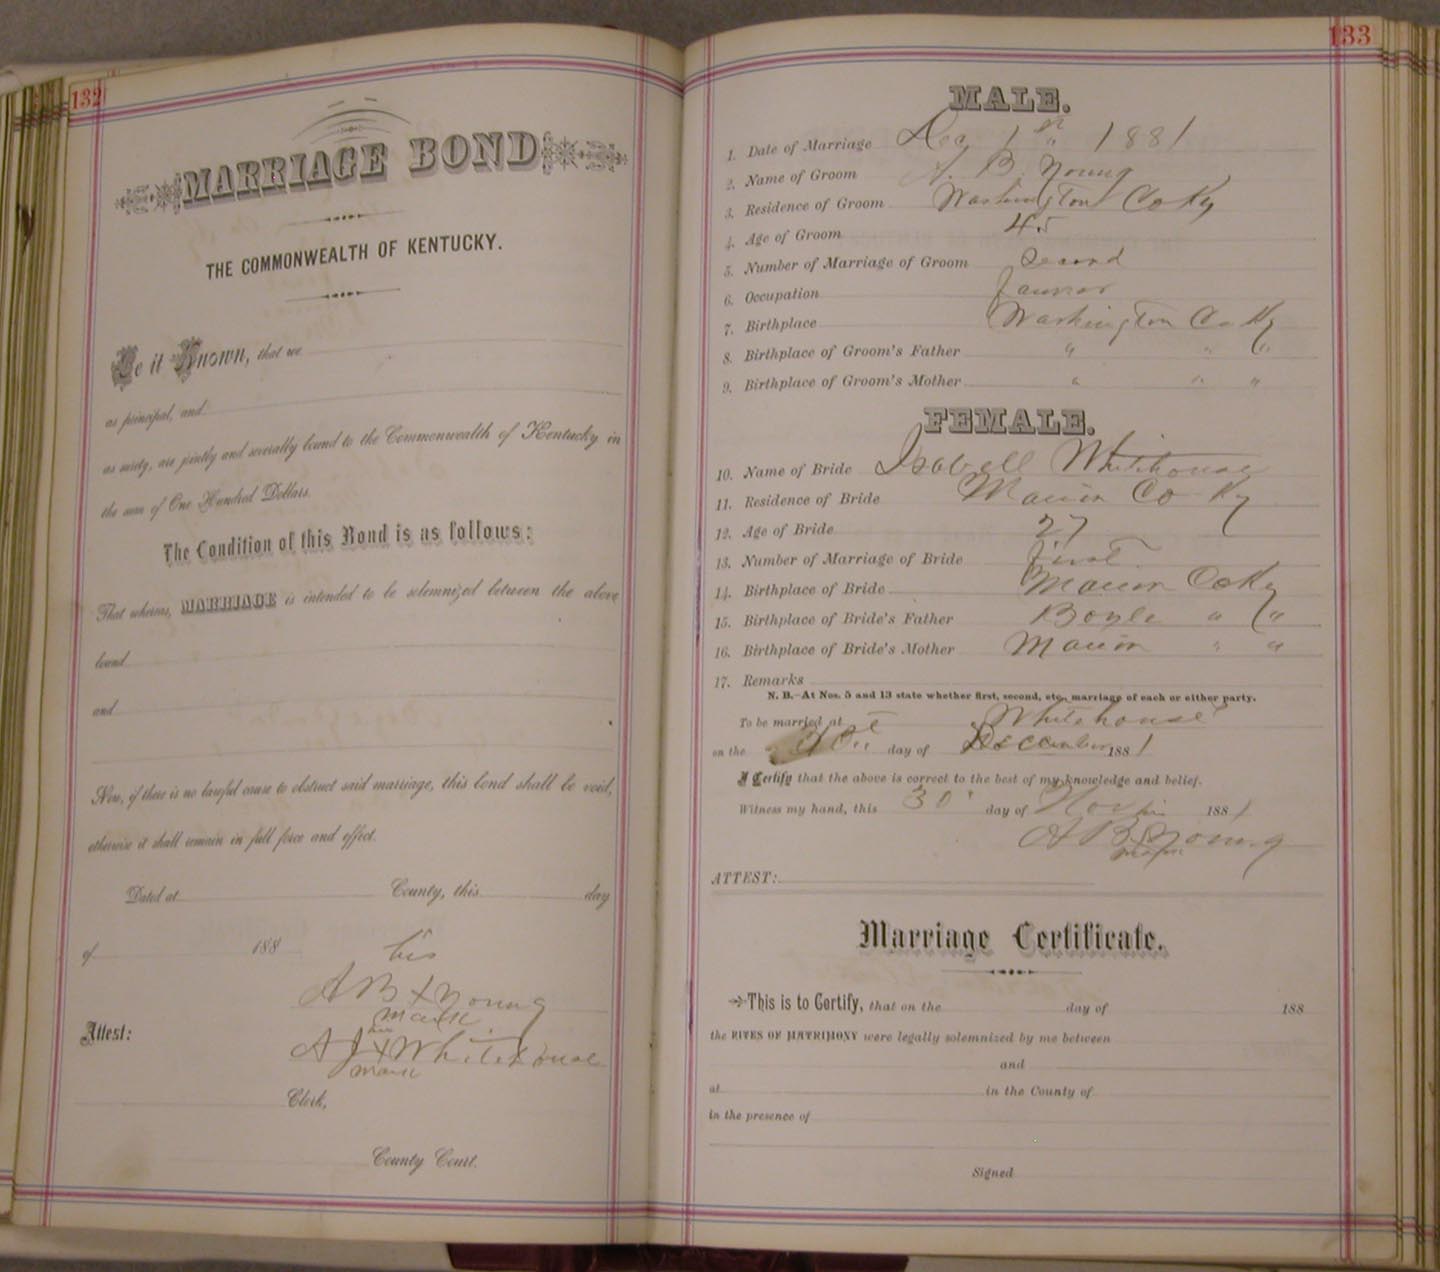 132
MARRIAGE BOND
THE COMMONWEALTH OF KENTUCKY.
Be it Known, that we
as principal, and
as surety, are jointly and severally bound to the Commonwealth of Kentucky in
the sum of One Hundred Dollars.
The Condition of this Bond is as follows:
That whereas, MARRIAGE is intended to be solemnized between the above
bound
and
Now, if there is no lawful cause to obstruct said marriage, this bond shall be void,
otherwise it shall remain in full force and effect.
Dated at County, this day
of 188
his
A B X Young
mark
Attest:
his
A J X Whitehouse
mark
Clerk,
County Court.
133
MALE.
1. Date of Marriage Dec 1st 1881
2. Name of Groom A. B. Young
3. Residence of Groom Washington Co Ky
4. Age of Groom 45
5. Number of Marriage of Groom Second
6. Occupation Farmer
7. Birthplace Washington Co Ky
8. Birthplace of Groom's Father " " "
9. Birthplace of Groom's Mother " " "
FEMALE.
10. Name of Bride Isabell Whitehouse
11. Residence of Bride Marion Co Ky
12. Age of Bride 27
13. Number of Marriage of Bride first
14. Birthplace of Bride Marion Co Ky
15. Birthplace of Bride's Father Boyle " "
16. Birthplace of Bride's Mother Marion " "
17. Remarks
N. B.—At Nos. 5 and 13 state whether first, second, etc., marriage of each or either party.
To be married at Whitehouse
on the day of December 1881
I Certify that the above is correct to the best of my knowledge and belief.
Witness my hand, this 30 day of Nov 1881
his
A B X Young
mark
ATTEST:
Marriage Certificate.
This is to Certify, that on the day of 188
the RITES OF MATRIMONY were legally solemnized by me between
and
at in the County of
in the presence of
Signed